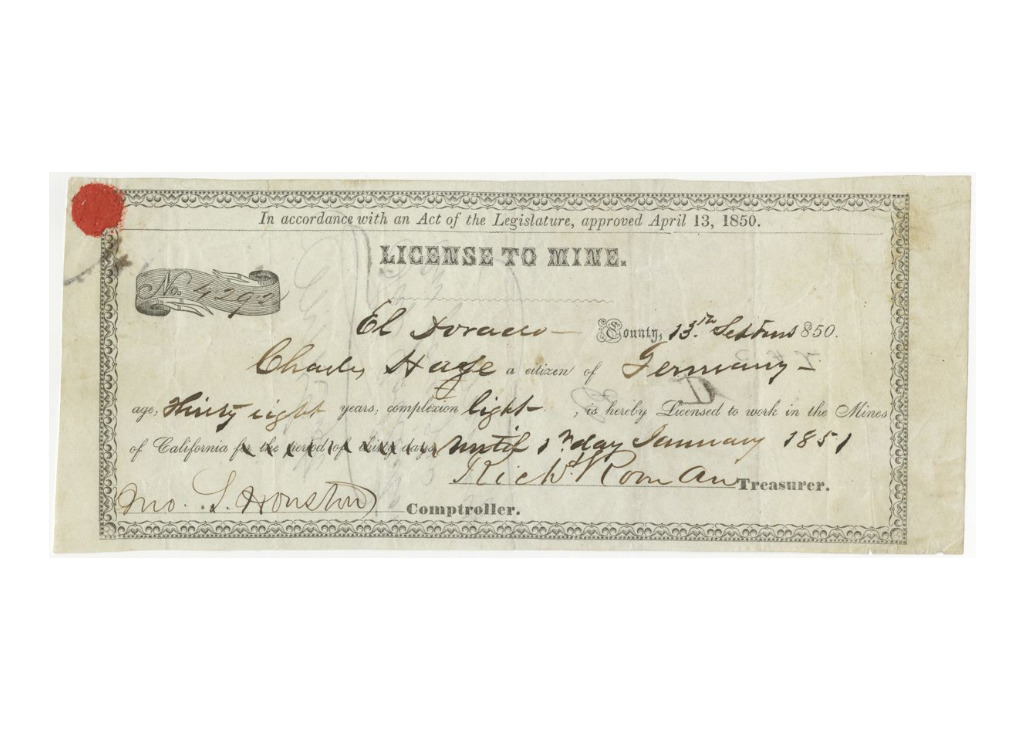 In accordance with an Act of the Legislature, approved April 13, 1850.
LICENSE TO MINE.
No. 4292
El Dorado County, 13th 1850.
Charles Hage a citizen of Germany
age, thirty eight years; complexion light, is hereby Licensed to work in the Mines
of California for the period of thirty days, until 1st day January 1851
Richd Roman Treasurer.
Jno. S. Houston Comptroller.